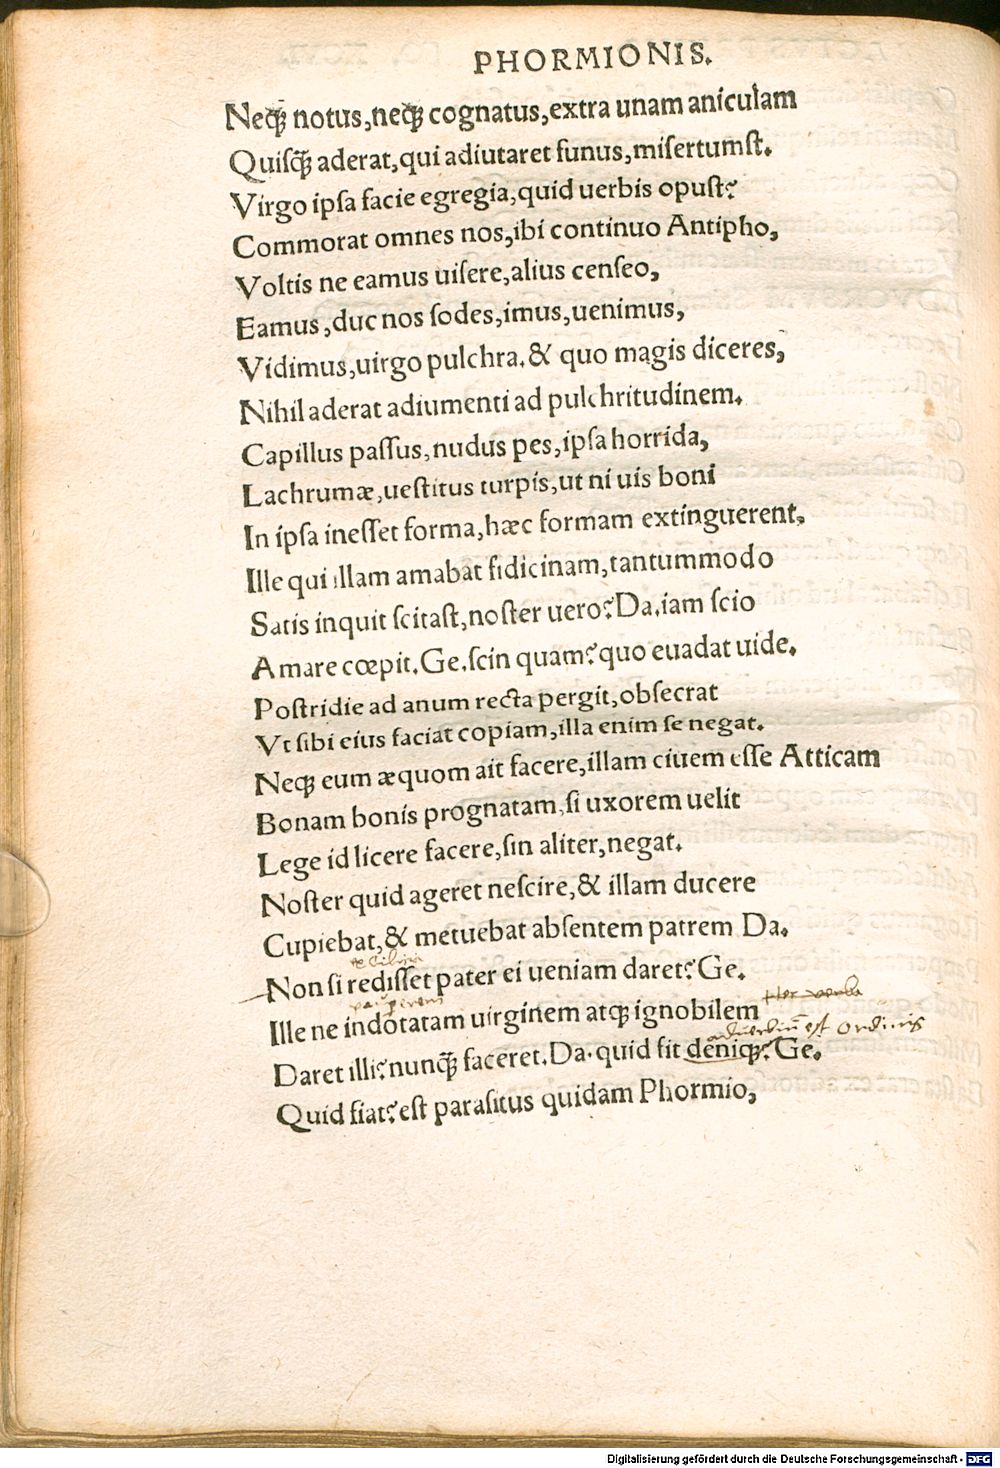 PHORMIONIS.
Neqꝫ notus,neqꝫ cognatus,extra unam aniculam
Quiſqꝫ aderat,qui adiutaret funus,miſertumſt.
Virgo ipſa facie egregia,quid uerbis opuſt?
Commorat omnes nos,ibi continuo Antipho,
Voltis ne eamus uiſere,alius cenſeo,
Eamus,duc nos ſodes,imus,uenimus,
Vidimus,uirgo pulchra.& quo magis diceres,
Nihil aderat adiumenti ad pulchritudinem.
Capillus paſſus,nudus pes,ipſa horrida,
Lachrumæ,ueſtitus turpis,ut ni uis boni
In ipſa ineſſet forma,hæc formam extinguerent,
Ille qui illam amabat fidicinam,tantummodo
Satis inquit ſcitaſt,noſter uero?Da.iam ſcio
Amare cœpit.Ge.ſcin quam?quo euadat uide.
Poſtridie ad anum recta pergit,obſecrat
Vt ſibi eius faciat copiam,illa enim ſe negat.
Neqꝫ eum æquom ait facere,illam ciuem eſſe Atticam
Bonam bonis prognatam,ſi uxorem uelit
Lege id licere facere,ſin aliter,negat.
Noſter quid ageret neſcire,& illam ducere
Cupiebat,& metuebat abſentem patrem Da.
Non ſi rediſſet pater ei ueniam daret?Ge.
pauperem
Ille ne indotatam uirginem atqꝫ ignobilem
aduerbiū est ordinis
Daret illi?nunqꝫ̃ faceret.Da.quid fit deniqꝫ?Ge.
Quid fiat?eſt paraſitus quidam Phormio,
Digitalisierung gefördert durch die Deutsche Forschungsgemeinschaft - DFG